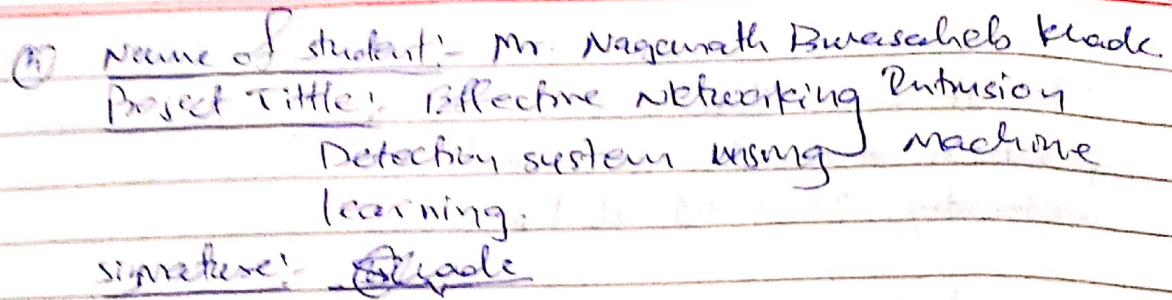 Name of student:- Mr. Naganath Buvasaheb Kade.
Project Tittle: Effective Networking Intrusion
Detection system using machine
learning.
signature:-